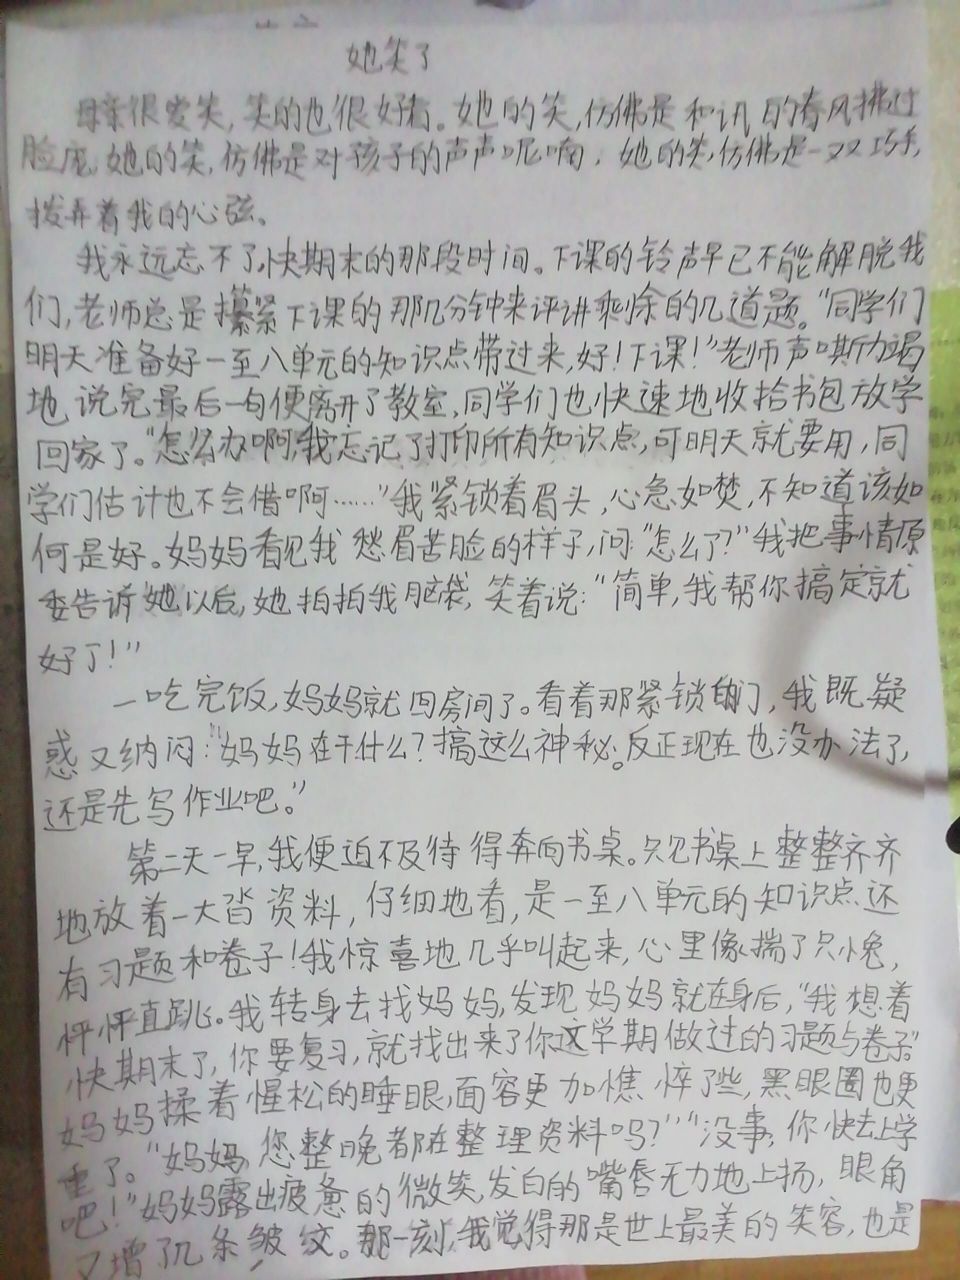 她笑了
母亲很爱笑,笑的也很好看。她的笑,仿佛是和讯的春风拂过
脸庞,她的笑,仿佛是对孩子的声声呢喃,她的笑,仿佛是一双巧手,
拨弄着我的心弦。
我永远忘不了,快期末的那段时间。下课的铃声早已不能解脱我
们,老师总是攥紧下课的那几分钟来评讲剩余的几道题。“同学们
明天准备好一至八单元的知识点带过来,好!下课!”老师声嘶力竭
地说完最后一句便离开了教室,同学们也快速地收拾书包放学
回家了。“怎么办啊,我忘记了打印所有知识点,可明天就要用,同
学们估计也不会借啊……”我紧锁着眉头,心急如焚,不知道该如
何是好。妈妈看见我愁眉苦脸的样子,问:“怎么了?”我把事情原
委告诉她以后,她拍拍我脑袋,笑着说:“简单,我帮你搞定就
好了!”
一吃完饭,妈妈就回房间了。看着那紧锁的门,我既疑
惑又纳闷:“妈妈在干什么?搞这么神秘。反正现在也没办法了,
还是先写作业吧。”
第二天一早,我便迫不及待得奔向书桌。只见书桌上整整齐齐
地放着一大沓资料,仔细地看,是一至八单元的知识点还
有习题和卷子!我惊喜地几乎叫起来,心里像揣了只小兔,
怦怦直跳。我转身去找妈妈,发现妈妈就在身后,“我想着
快期末了,你要复习,就找出来了你这学期做过的习题与卷子”
妈妈揉着惺松的睡眼,面容更加憔悴了些,黑眼圈也更
重了。“妈妈,您整晚都在整理资料吗?”“没事,你快去上学
吧!”妈妈露出疲惫的微笑,发白的嘴唇无力地上扬,眼角
又增了几条皱纹。那一刻,我觉得那是世上最美的笑容,也是